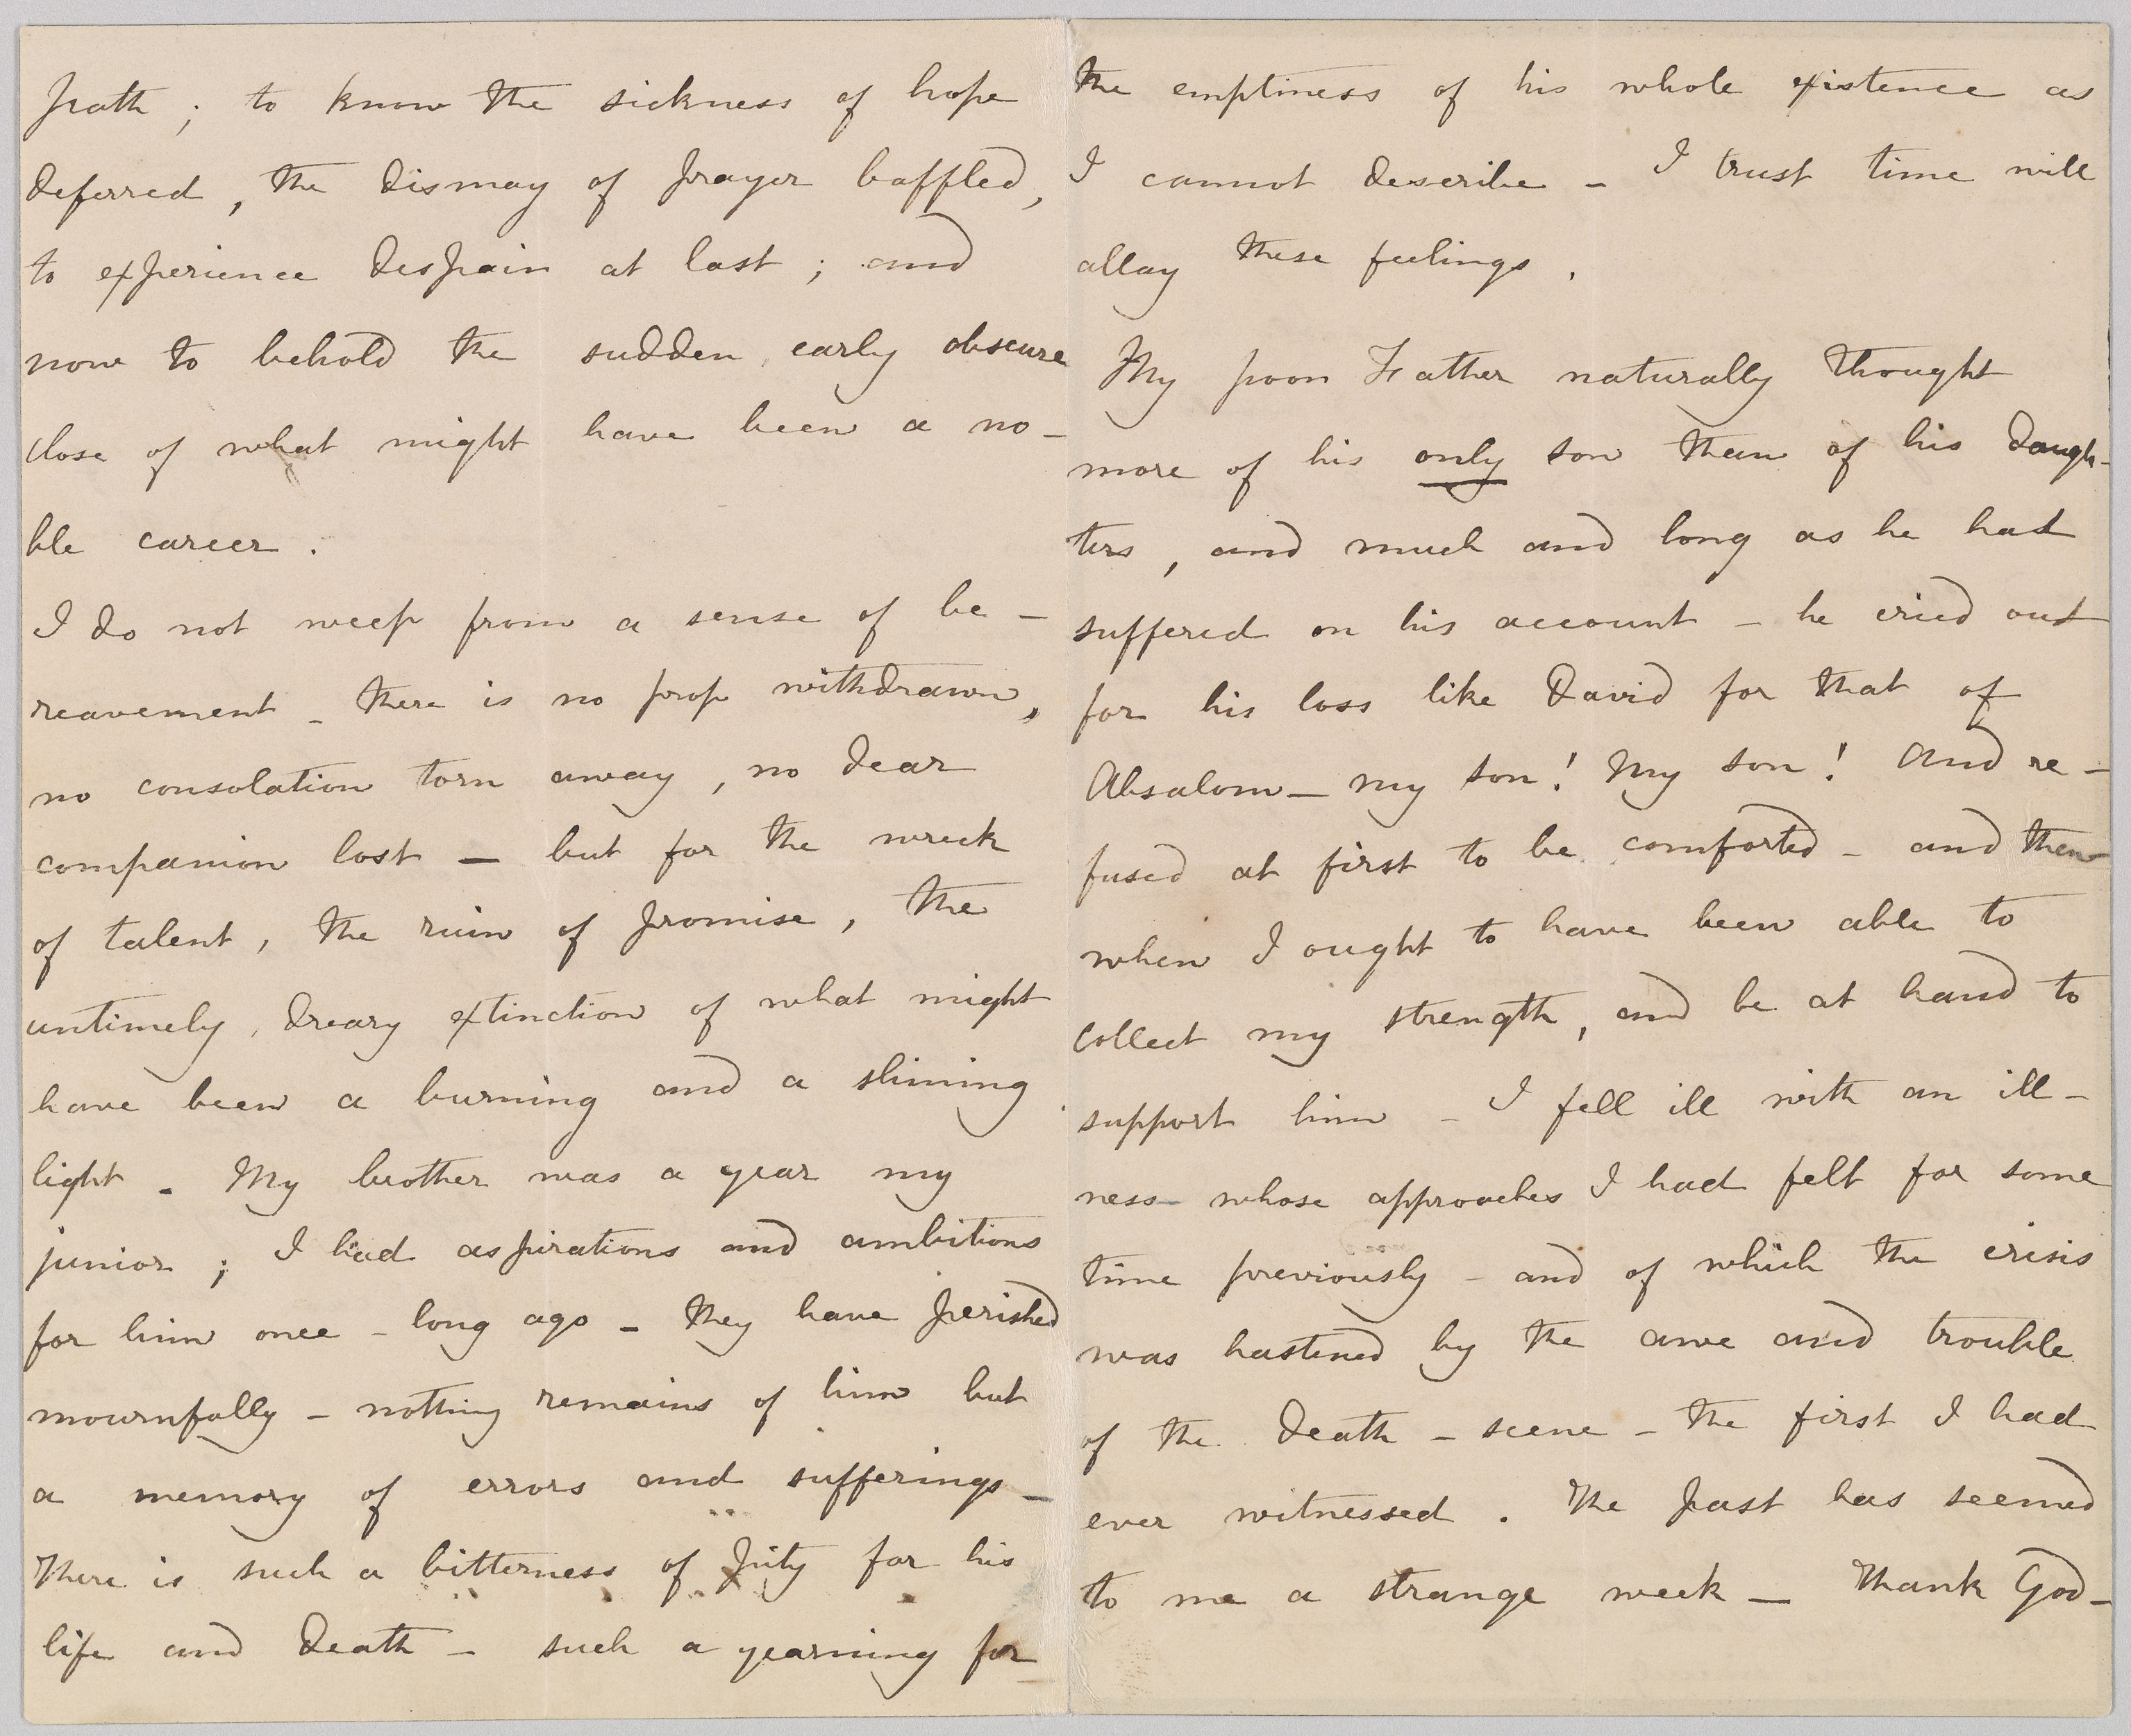 path ; to know the sickness of hope
deferred , the dismay of prayer baffled,
to experience despair at last ; and
now to behold the sudden , early obscure
close of what might have been a no-
ble career .
I do not weep from a sense of be -
reavement - there is no prop withdrawn ,
no consolation torn away , no dear
companion lost — but for the wreck
of talent , the ruin of promise , the
untimely , dreary extinction of what might
have been a burning and a shining
light . My brother was a year my
junior ; I had aspirations and ambitions
for him once - long ago - they have perished
mournfully - nothing remains of him but
a memory of errors and sufferings -
There is such a bitterness of pity for his
life and death - such a yearning for
the emptiness of his whole existence as
I cannot describe - I trust time will
allay these feelings .
My poor Father naturally thought
more of his only son than of his daugh-
ters , and much and long as he had
suffered on his account - he cried out
for his loss like David for that of
Absalom - my son ! My son ! And re -
fused at first to be comforted - and then
when I ought to have been able to
collect my strength , and be at hand to
support him - I fell ill with an ill -
ness whose approaches I had felt for some
time previously - and of which the crisis
was hastened by the awe and trouble
of the death - scene - the first I had
ever witnessed . The past has seemed
to me a strange week — Thank God -